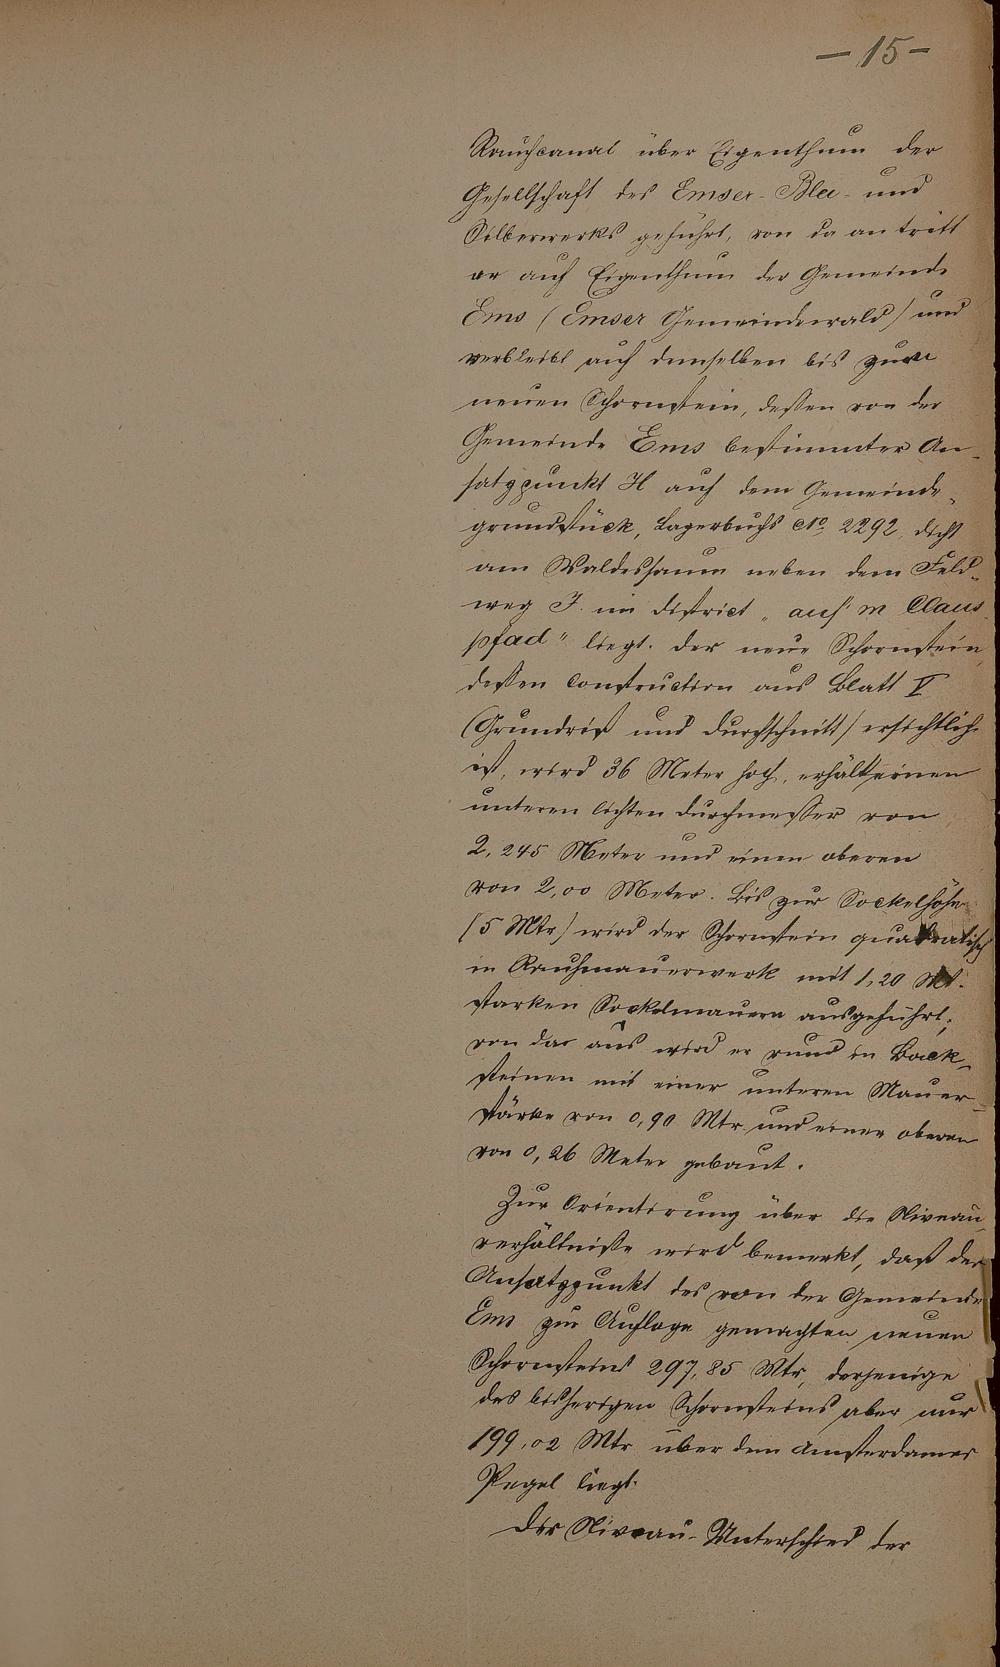 — 15 —
Rauchcanal über Eigenthum der
Gesellschaft des Emser-Blei- und
Silberwerks geführt, von da an tritt
er auf Eigenthum der Gemeinde
Ems (Emser Gemeindewald) und
verbleibt auf demselben bis zum
neuen Schornstein, dessen von der
Gemeinde Ems bestimmter An-
satzpunkt H auf dem Gemeinde-
grundstück, Lagerbuchs No 2292, dicht
am Waldessaum neben dem Feld-
weg J. im District „auf'm Claus-
pfad" liegt. Der neue Schornstein,
dessen Construction aus Blatt V
(Grundriß und Durchschnitt) ersichtlich
ist, wird 36 Meter hoch, erhält einen
unteren lichten Durchmesser von
2,245 Meter und einen oberen
von 2,00 Meter. Bis zur Sockelhöhe
(5 Mtr) wird der Schornstein quadratisch
in Rauhmauerwerk mit 1,20 Mt.
starken Sockelmauern ausgeführt;
von da aus wird er rund in Back-
steinen mit einer unteren Mauer-
stärke von 0,90 Mtr. und einer oberen
von 0,26 Meter gebaut.
Zur Orientirung über die Niveau-
verhältnisse wird bemerkt, daß der
Ansatzpunkt des von der Gemeinde
Ems zur Auflage gemachten neuen
Schornsteins 297,85 Mtr, derjenige
des bisherigen Schornsteins aber nur
199,02 Mtr über dem Amsterdamer
Pegel liegt.
Der Niveau-Unterschied der